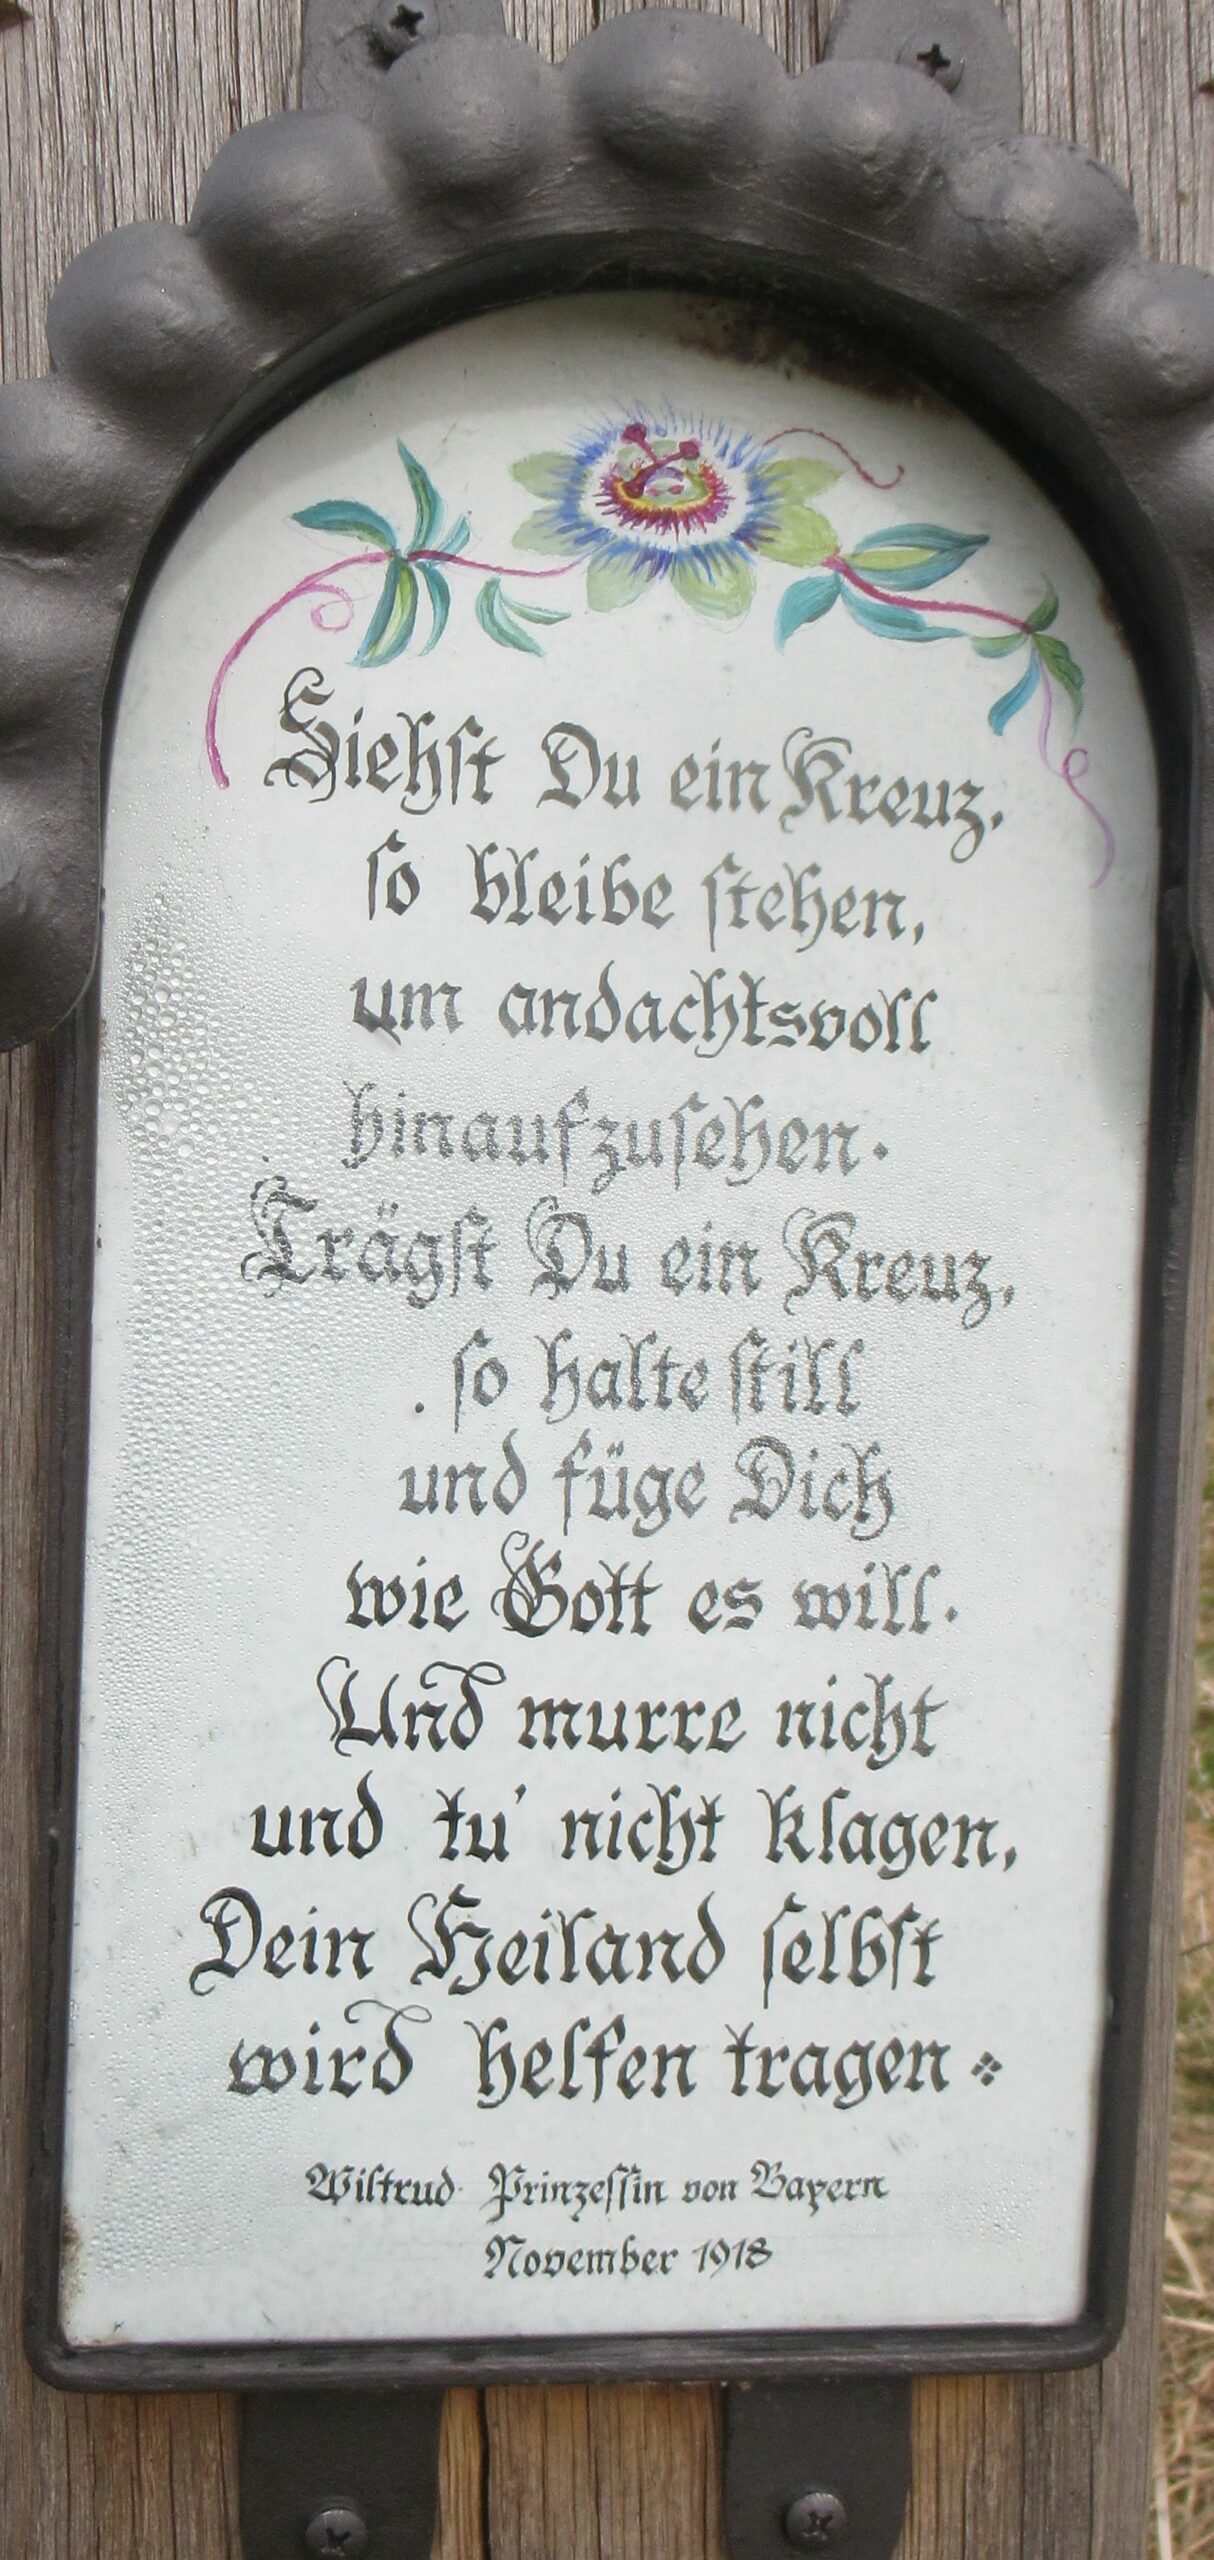 Siehst Du ein Kreuz,
so bleibe stehen,
um andachtsvoll
hinaufzusehen.
Trägst Du ein Kreuz,
so halte still
und füge Dich
wie Gott es will.
Und murre nicht
und tu' nicht klagen,
Dein Heiland selbst
wird helfen tragen
Wiltrud Prinzessin von Bayern
November 1918